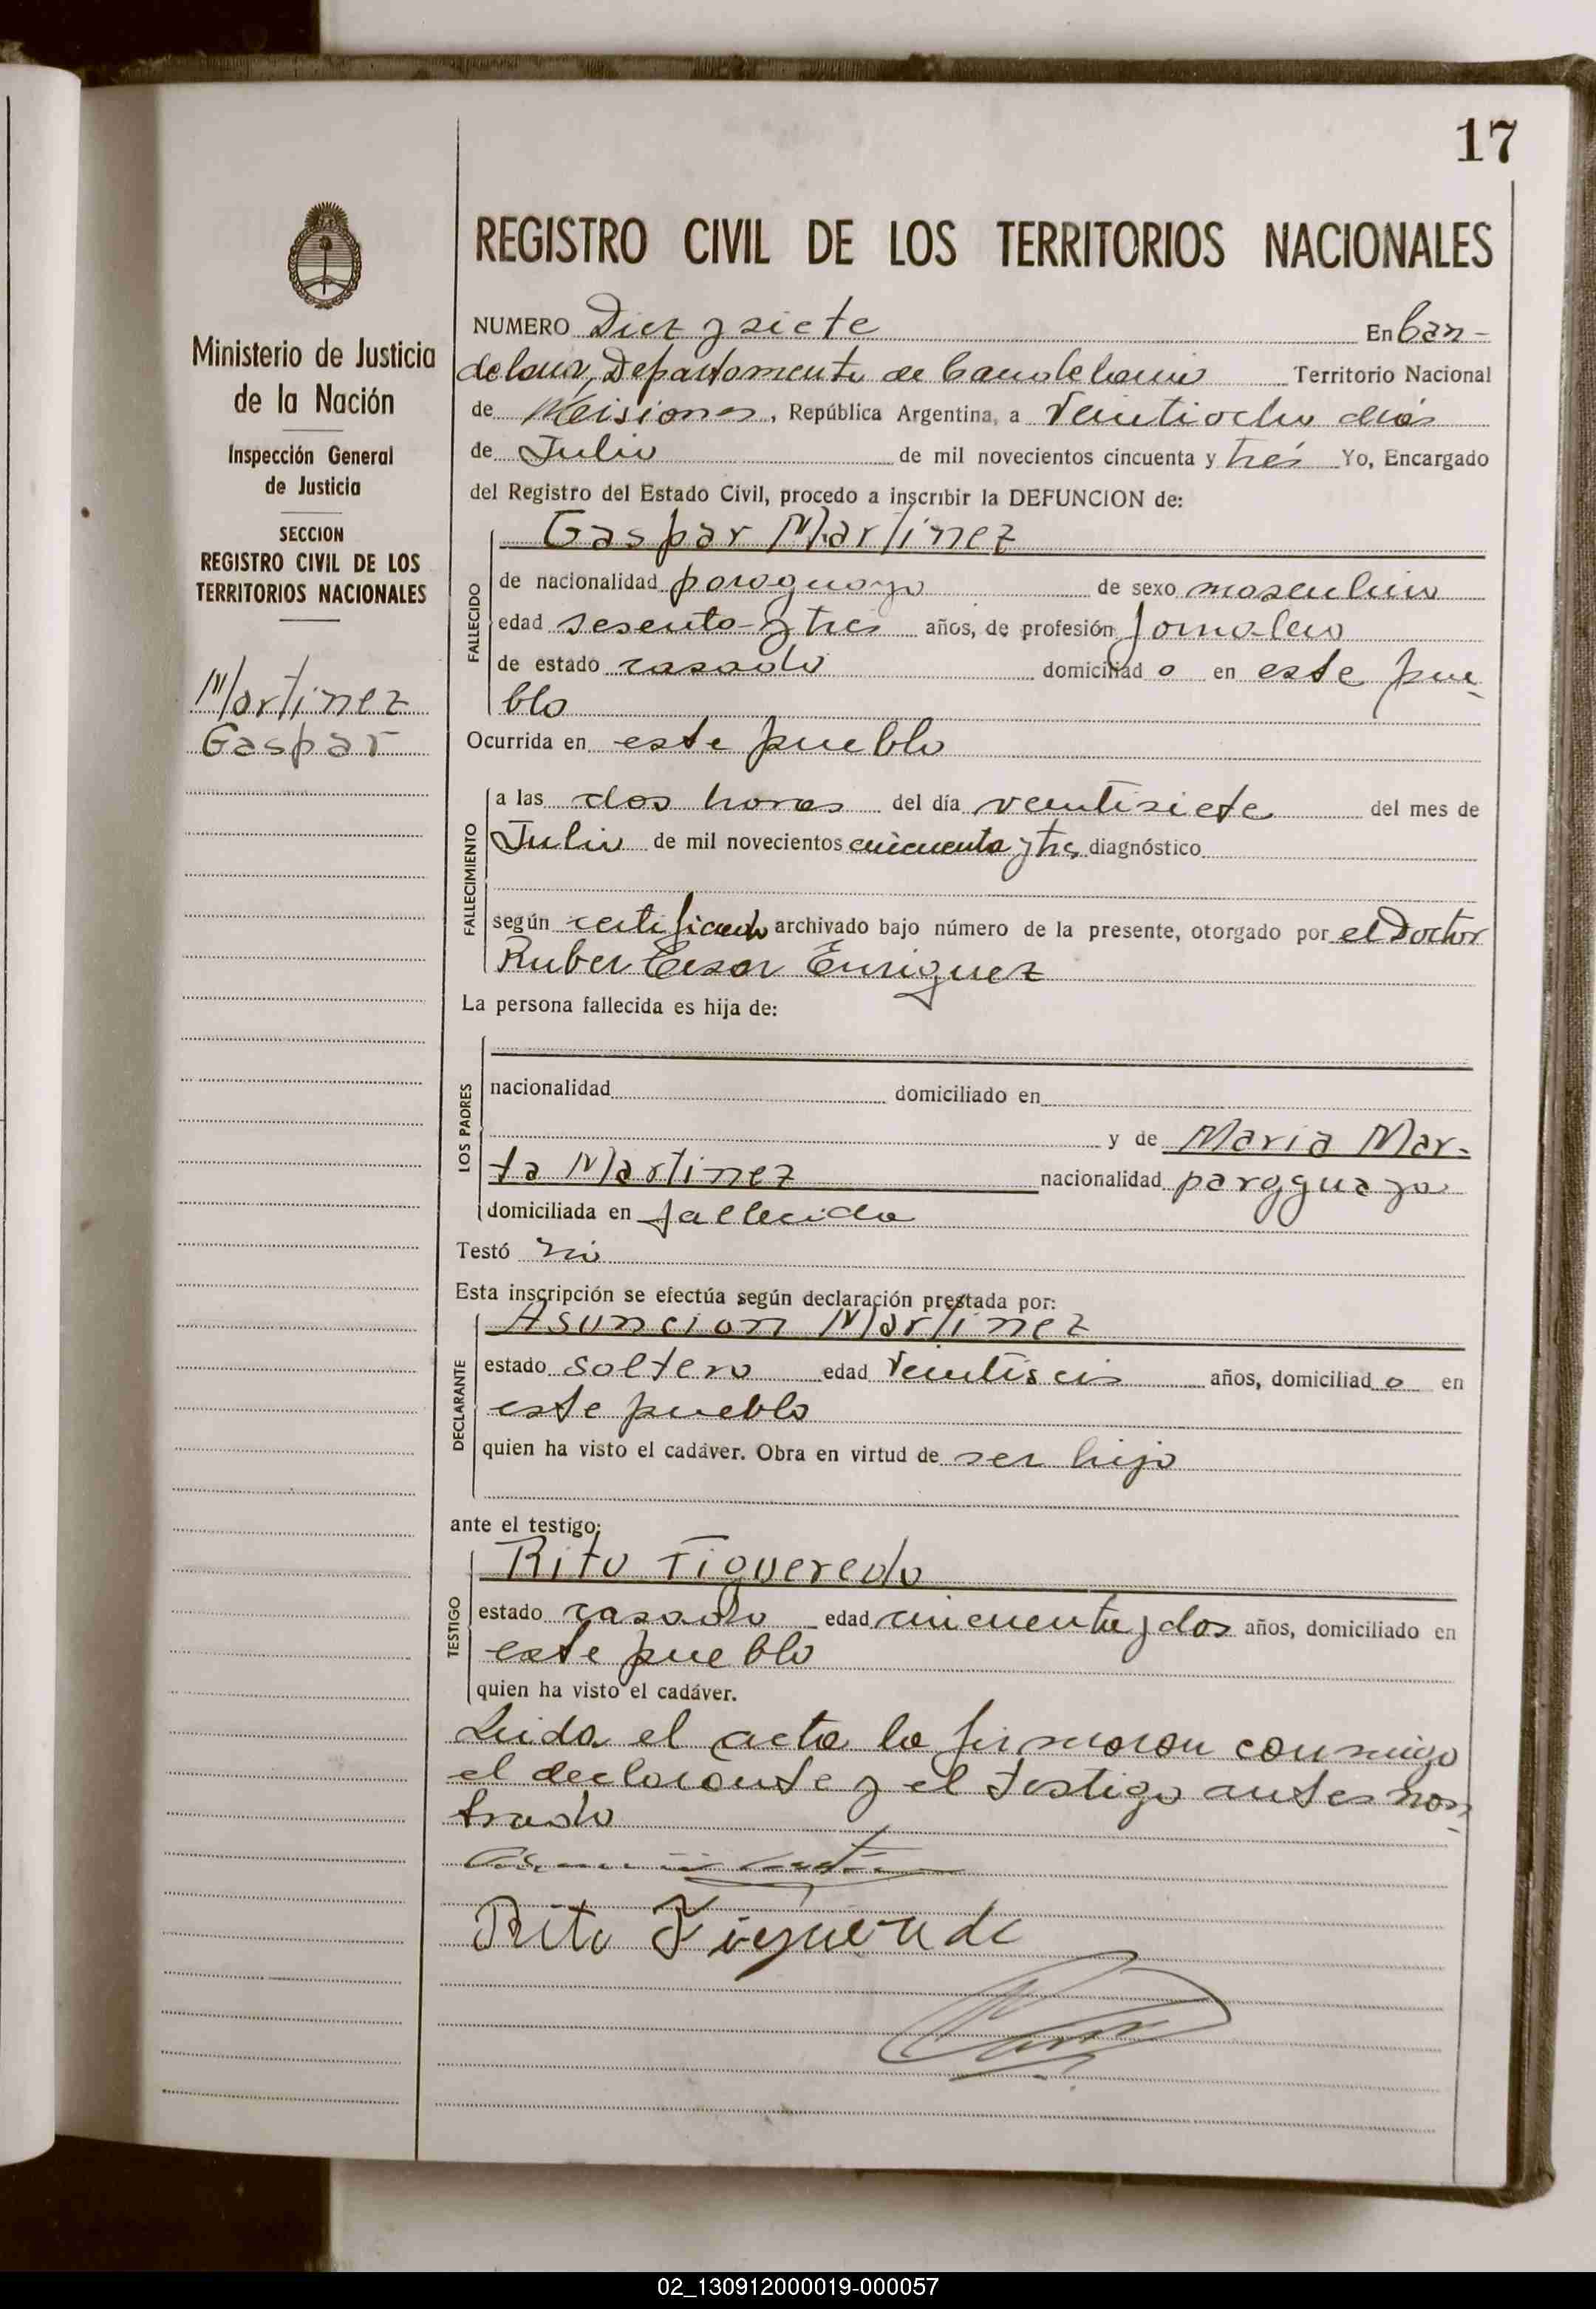 17
REGISTRO CIVIL DE LOS TERRITORIOS NACIONALES
Ministerio de Justicia
de la Nación
Inspección General
de Justicia
SECCION
REGISTRO CIVIL DE LOS
TERRITORIOS NACIONALES
Martinez
Gaspar
NUMERO Diez y siete En Can-
delaria, Departamento de Candelaria Territorio Nacional
de Misiones, República Argentina, a Veintiocho dias
de Julio de mil novecientos cincuenta y trés Yo, Encargado
del Registro del Estado Civil, procedo a inscribir la DEFUNCION de:
Gaspar Martinez
FALLECIDO
de nacionalidad paraguaya de sexo masculino
edad sesenta y tres años, de profesión Jornalero
de estado casado domiciliado en este pue-
blo
Ocurrida en este pueblo
FALLECIMIENTO
a las dos horas del día veintisiete del mes de
Julio de mil novecientos cincuenta y tres diagnóstico
según certificado archivado bajo número de la presente, otorgado por el Doctor
Ruber Cesar Enriquez
La persona fallecida es hija de:
LOS PADRES
nacionalidad domiciliado en
y de Maria Mar-
ta Martinez nacionalidad paraguaya
domiciliada en fallecida
Testó no
Esta inscripción se efectúa según declaración prestada por:
Asuncion Martinez
DECLARANTE
estado soltero edad Veintiseis años, domiciliado en
este pueblo
quien ha visto el cadáver. Obra en virtud de ser hijo
ante el testigo:
Rito Figueredo
TESTIGO
estado casado edad cincuenta y dos años, domiciliado en
este pueblo
quien ha visto el cadáver.
Leida el acta la firmaron conmigo
el declarante y el testigo antes nom-
brado
Rito Figueredo
02_130912000019-000057